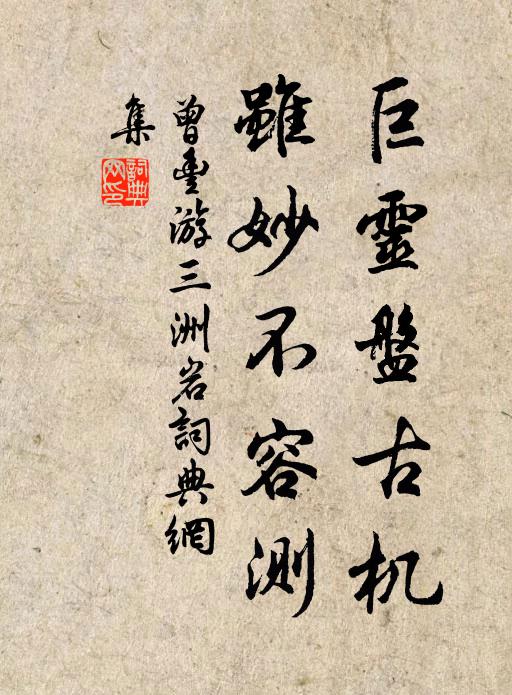 巨靈盤古机
雖妙不容測
曾豊游三洲岩詞典網
集
詞典網印